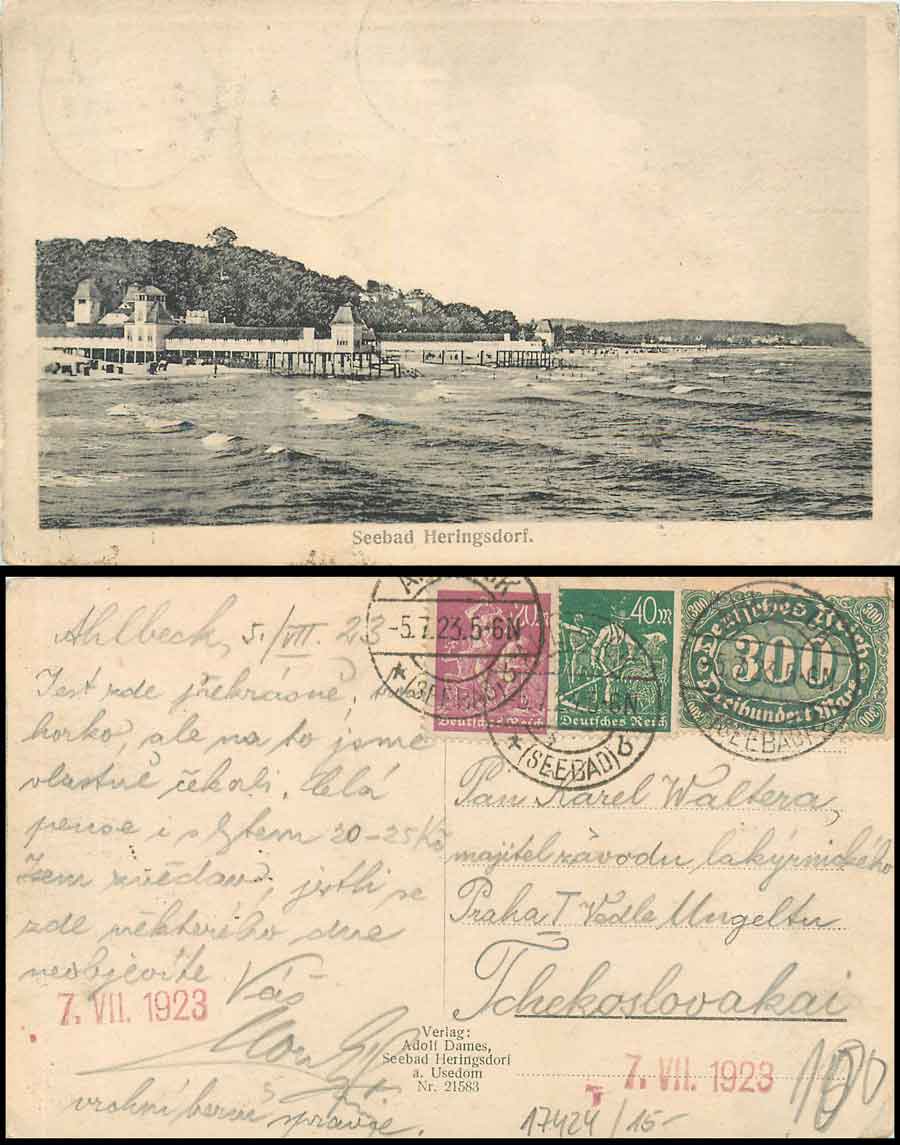 Seebad Heringsdorf.
Ahlbeck, 5./VII. 23
Jest zde překrásně,
horko, ale na to jsme
vlastně čekali. Celá
pense i s bytem 20-25 Kč
Jsem zvědav, jestli se
zde některého dne
neobjevíte.
Váš
7. VII. 1923
vrchní berní správce.
-5.7.23.5-6N
(SEEBAD) b
40 m
Deutsches Reich
Deutsches Reich
300
Deutsches Reich
300
Dreihundert Mark
Pan Karel Waltera,
majitel závodu lakýrnického
Praha I Vedle Ungeltu
Tchekoslovakai
Verlag:
Adolf Dames,
Seebad Heringsdorf
a. Usedom
Nr. 21583
7. VII. 1923
17424/15-